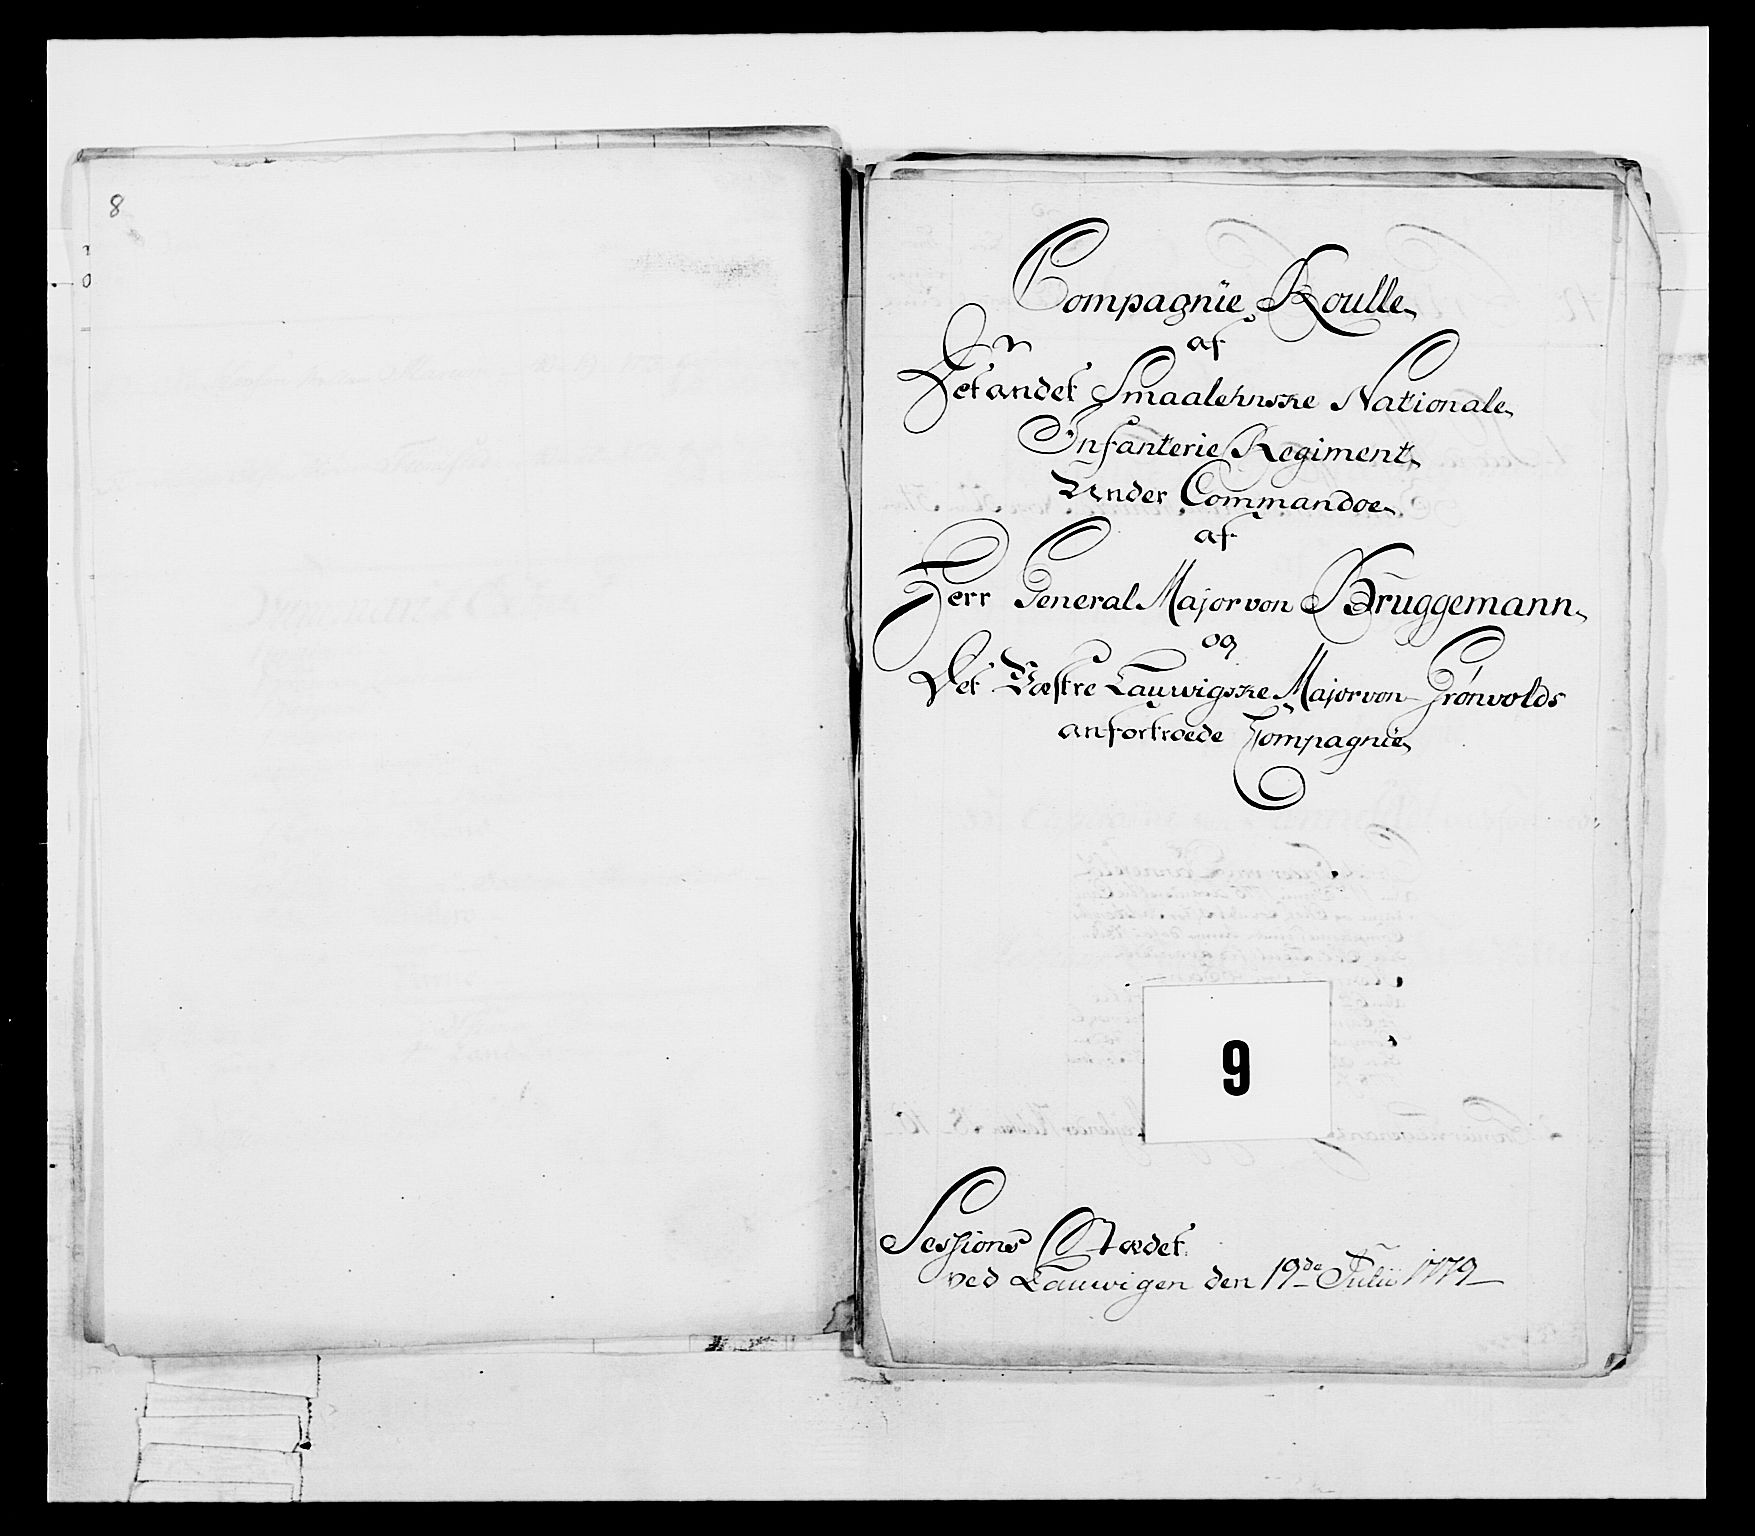 8
0
Compagnie Roulle
af
Det andet Smaalehnske Nationale
Infanterie Regiment
Under Commandoe
af
Herr General Major von Bruggemann
og
Det Væstre Lauwigske Major von Grönvolds
anfortroede Compagnie
9
Sessions Stædet
ved Lauwigen den 19de Julii 1779